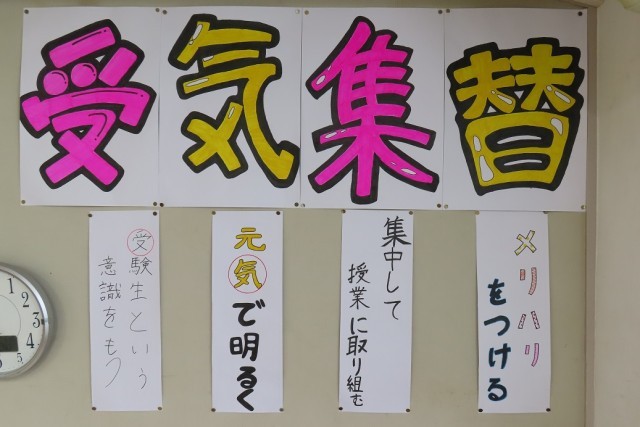 受気集替
受験生という
意識をもつ
元気で明るく
集中して
授業に取り組む
メリハリ
をつける
1
2
3
4
5